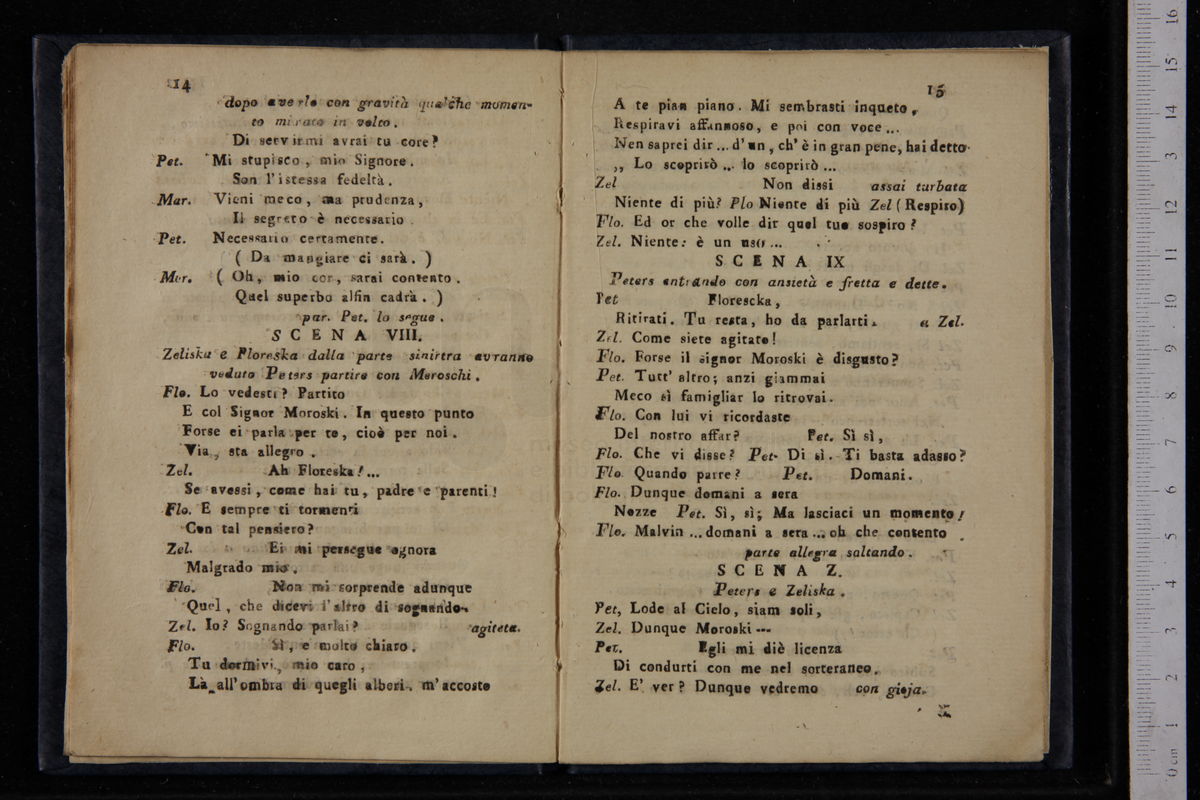 14
dopo averlo con gravità qualche momen-
to mirato in volto.
Di servirmi avrai tu core?
Pet. Mi stupisco, mio Signore.
Son l'istessa fedeltà.
Mar. Vieni meco, ma prudenza,
Il segreto è necessario.
Pet. Necessario certamente.
( Da mangiare ci sarà. )
Mor. ( Oh, mio cor, sarai contento.
Quel superbo alfin cadrà. )
par. Pet. lo segue.
SCENA VIII.
Zeliska e Floreska dalla parte sinirtra avranno
veduto Peters partire con Moroschi.
Flo. Lo vedesti? Partito
E col Signor Moroski. In questo punto
Forse ei parla per te, cioè per noi.
Via, sta allegro.
Zel. Ah Floreska!...
Se avessi, come hai tu, padre e parenti!
Flo. E sempre ti tormenti
Con tal pensiero?
Zel. Ei mi persegue ognora
Malgrado mio.
Flo. Non mi sorprende adunque
Quel, che dicevi l'altro di sognando.
Zel. Io? Sognando parlai? agiteta.
Flo. Sì, e molto chiaro.
Tu dormivi, mio caro,
Là all'ombra di quegli alberi, m'accosto
15
A te pian piano. Mi sembrasti inqueto,
Respiravi affannoso, e poi con voce...
Nen saprei dir... d'un, ch'è in gran pene, hai detto
,, Lo scoprirò ... lo scoprirò ...
Zel Non dissi assai turbata
Niente di più? Plo Niente di più Zel (Respiro)
Flo. Ed or che volle dir quel tuo sospiro?
Zel. Niente: è un uso...
SCENA IX
Peters entrando con ansietà e fretta e dette.
Pet Florescka,
Ritirati. Tu resta, ho da parlarti. a Zel.
Zel. Come siete agitato!
Flo. Forse il signor Moroski è disgusto?
Pet. Tutt' altro; anzi giammai
Meco sì famigliar lo ritrovai.
Flo. Con lui vi ricordaste
Del nostro affar? Pet. Sì sì,
Flo. Che vi disse? Pet. Di sì. Ti basta adasso?
Flo. Quando parre? Pet. Domani.
Flo. Dunque domani a sera
Nozze Pet. Sì, sì; Ma lasciaci un momento!
Flo. Malvin ...domani a sera ... oh che contento
parte allegra saltando.
SCENA Z.
Peters e Zeliska.
Pet, Lode al Cielo, siam soli,
Zel. Dunque Moroski ---
Pet. Egli mi diè licenza
Di condurti con me nel sorteraneo.
Zel. E' ver? Dunque vedremo con gioja.
16
15
14
13
12
11
10
9
8
7
6
5
4
3
2
1
0 cm